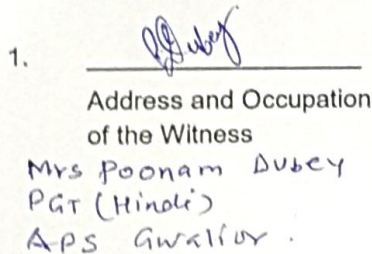 P Dubey
1.
Address and Occupation
of the Witness
Mrs Poonam Dubey
PGT (Hindi)
APS Gwalior.